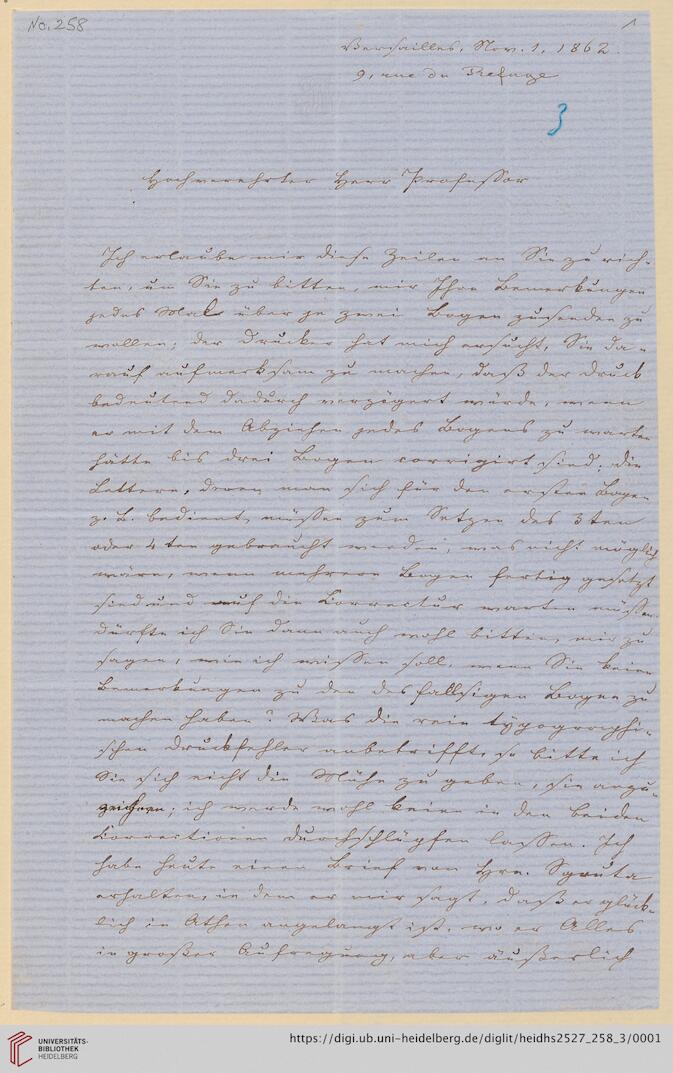 No. 258
1
Versailles, Nov. 1, 1862.
9, rue du Refuge
3
Hochverehrter Herr Professor
Ich erlaube mir diese Zeilen an Sie zu rich-
ten, um Sie zu bitten, mir Ihre Bemerkungen
jedes Mal über je zwei Bogen zusenden zu
wollen; der Drucker hat mich ersucht, Sie da-
rauf aufmerksam zu machen, daß der Druck
bedeutend dadurch verzögert würde, wenn
er mit dem Abziehen jedes Bogens zu warten
hätte bis drei Bogen corrigirt sind; die
Lettern, deren man sich für den ersten Bogen
z. B. bedient, müssen zum Setzen des 3ten
oder 4ten gebraucht werden, was nicht möglich
wäre, wenn mehrere Bogen fertig gesetzt
sind und auf die Correctur warten müssen.
Dürfte ich Sie dann auch wohl bitten, mir zu
sagen, wie ich wissen soll, wenn Sie keine
Bemerkungen zu den desfallsigen Bogen zu
machen haben? Was die rein typographi-
schen Druckfehler anbetrifft, so bitte ich
Sie sich nicht die Mühe zu geben, sie anzu-
zeichnen; ich werde wohl keine in den beiden
Correctionen durchschlüpfen lassen. Ich
habe heute einen Brief von Hrn. Sgouta
erhalten, in dem er mir sagt, daß er glück-
lich in Athen angelangt ist, wo er Alles
in großer Aufregung, aber äußerlich
UNIVERSITÄTS-
BIBLIOTHEK
HEIDELBERG
https://digi.ub.uni-heidelberg.de/diglit/heidhs2527_258_3/0001